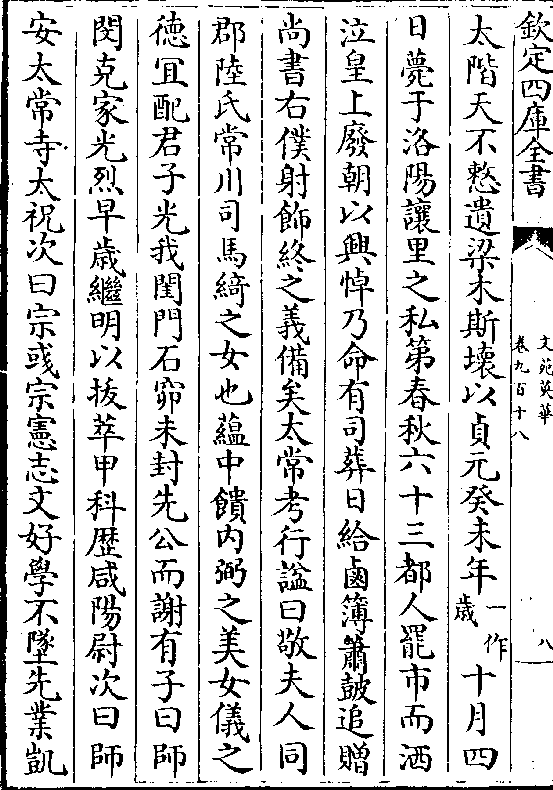 欽定四庫全書
文苑英華
卷九百十八
八
太階天不憗遺梁木斯壞以貞元癸未年一作歲十月四
日薨于洛陽讓里之私第春秋六十三都人罷市而洒
泣皇上廢朝以興悼乃命有司葬日給鹵簿簫鼓追贈
尚書右僕射飾終之義備矣太常考行諡曰敬夫人同
郡陸氏常川司馬綺之女也蘊中饋内弼之美女儀之
徳宜配君子光我閨門石窌未封先公而謝有子曰師
閔克家光烈早歳繼明以拔萃甲科歴咸陽尉次曰師
安太常寺太祝次曰宗彧宗憲志文好學不墜先業凱